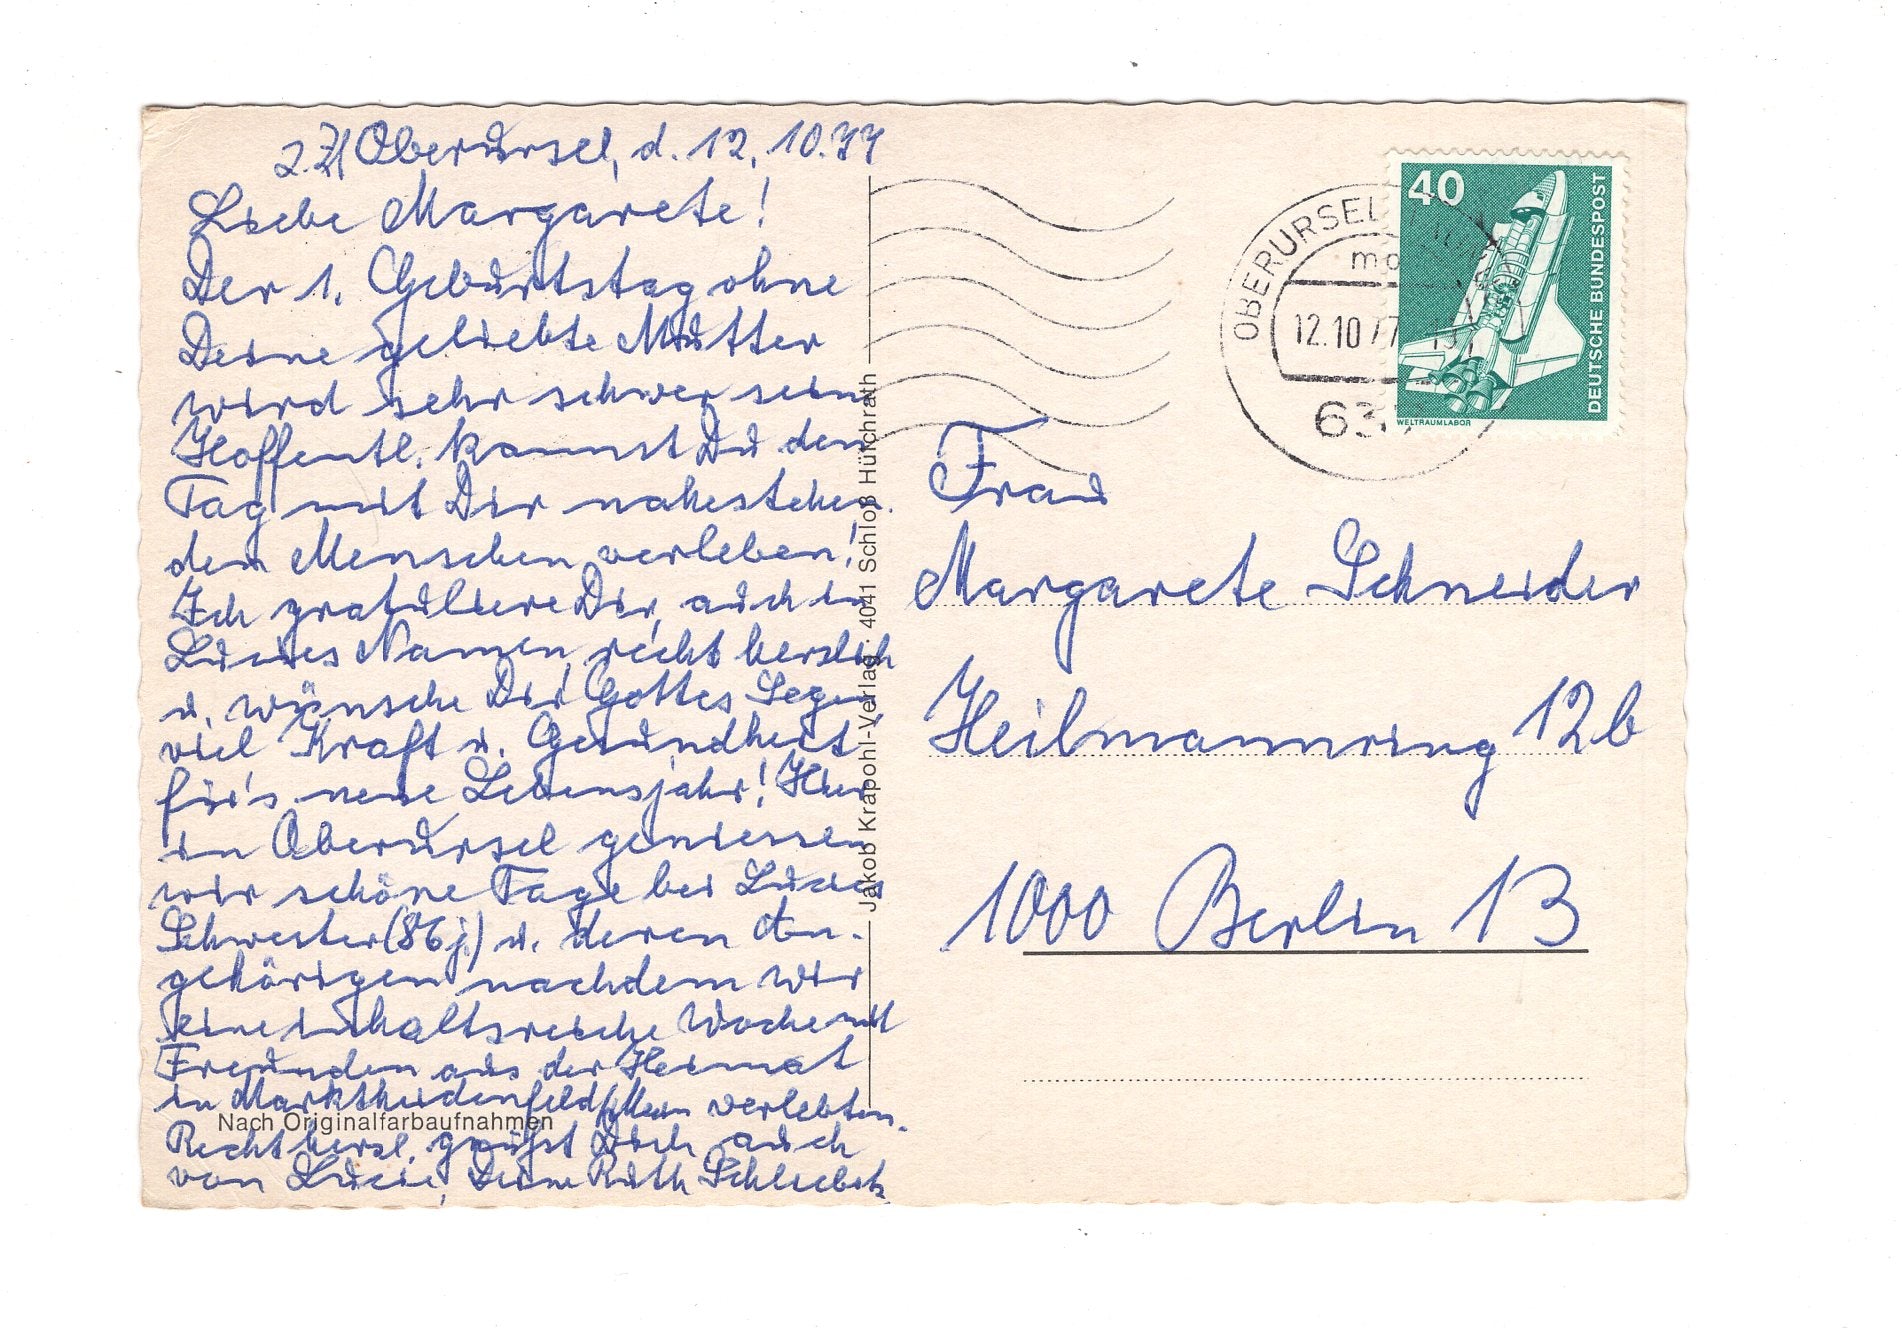 z.Zt Oberursel, d. 12. 10. 77
Liebe Margarete!
Der 1. Geburtstag ohne
Deine geliebte Mutter
wird sehr schwer sein
Hoffentl. kannst Du den
Tag mit Dir nahestehen.
den Menschen verleben!
Ich gratuliere Dir, auch in
Lucies Namen, recht herzlich
u. wünsche Dir Gottes Segen,
viel Kraft u. Gesundheit
für's neue Lebensjahr! Hier
in Oberursel geniessen
wir schöne Tage bei Lucies
Schwester (86 j.) u. deren An-
gehörigen nachdem wir
eine inhaltsreiche Woche mit
Freunden aus der Heimat
in Marktheidenfeld/Main verlebten.
Recht herzl. grüßt Dich, auch
von Lucie, Deine Ruth Schliebitz
Nach Originalfarbaufnahmen
Jakob Krapohl-Verlag · 4041 Schloß Hülchrath
OBERURSEL
12.10.77
40
DEUTSCHE BUNDESPOST
WELTRAUMLABOR
Frau
Margarete Schneider
Heilmannring 12b
1000 Berlin 13